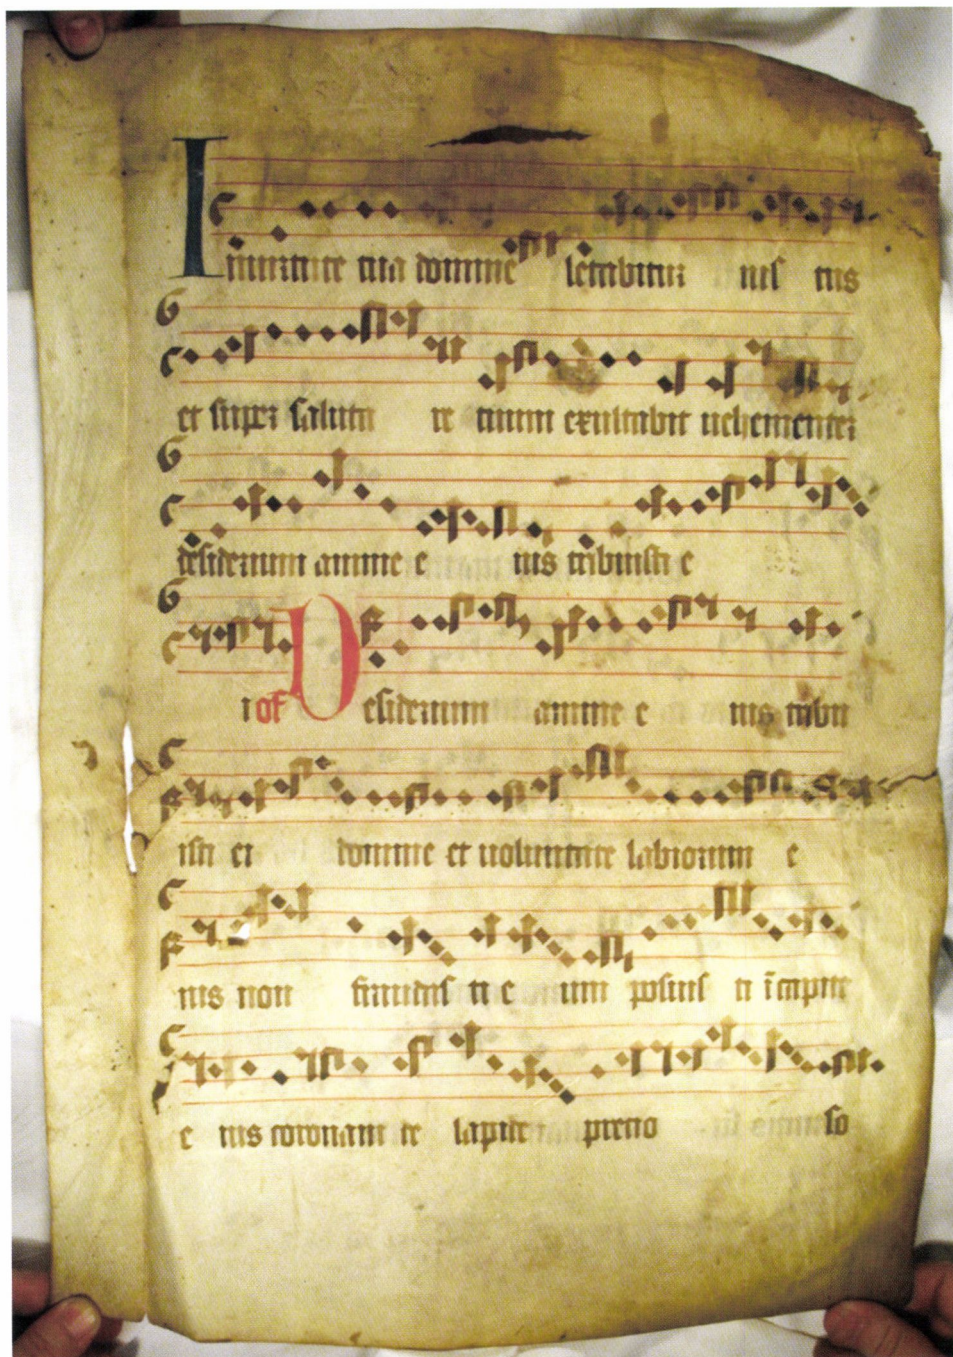 In uirtute tua domine letabitur ius tus
et super saluta re tuum exultabit uehementer
desiderium anime e ius tribuisti e
i of Desiderium anime e ius tribu
isti ei domine et uoluntate labiorum e
ius non fraudasti e um posuisti ī capite
e ius coronam te lapide precio so